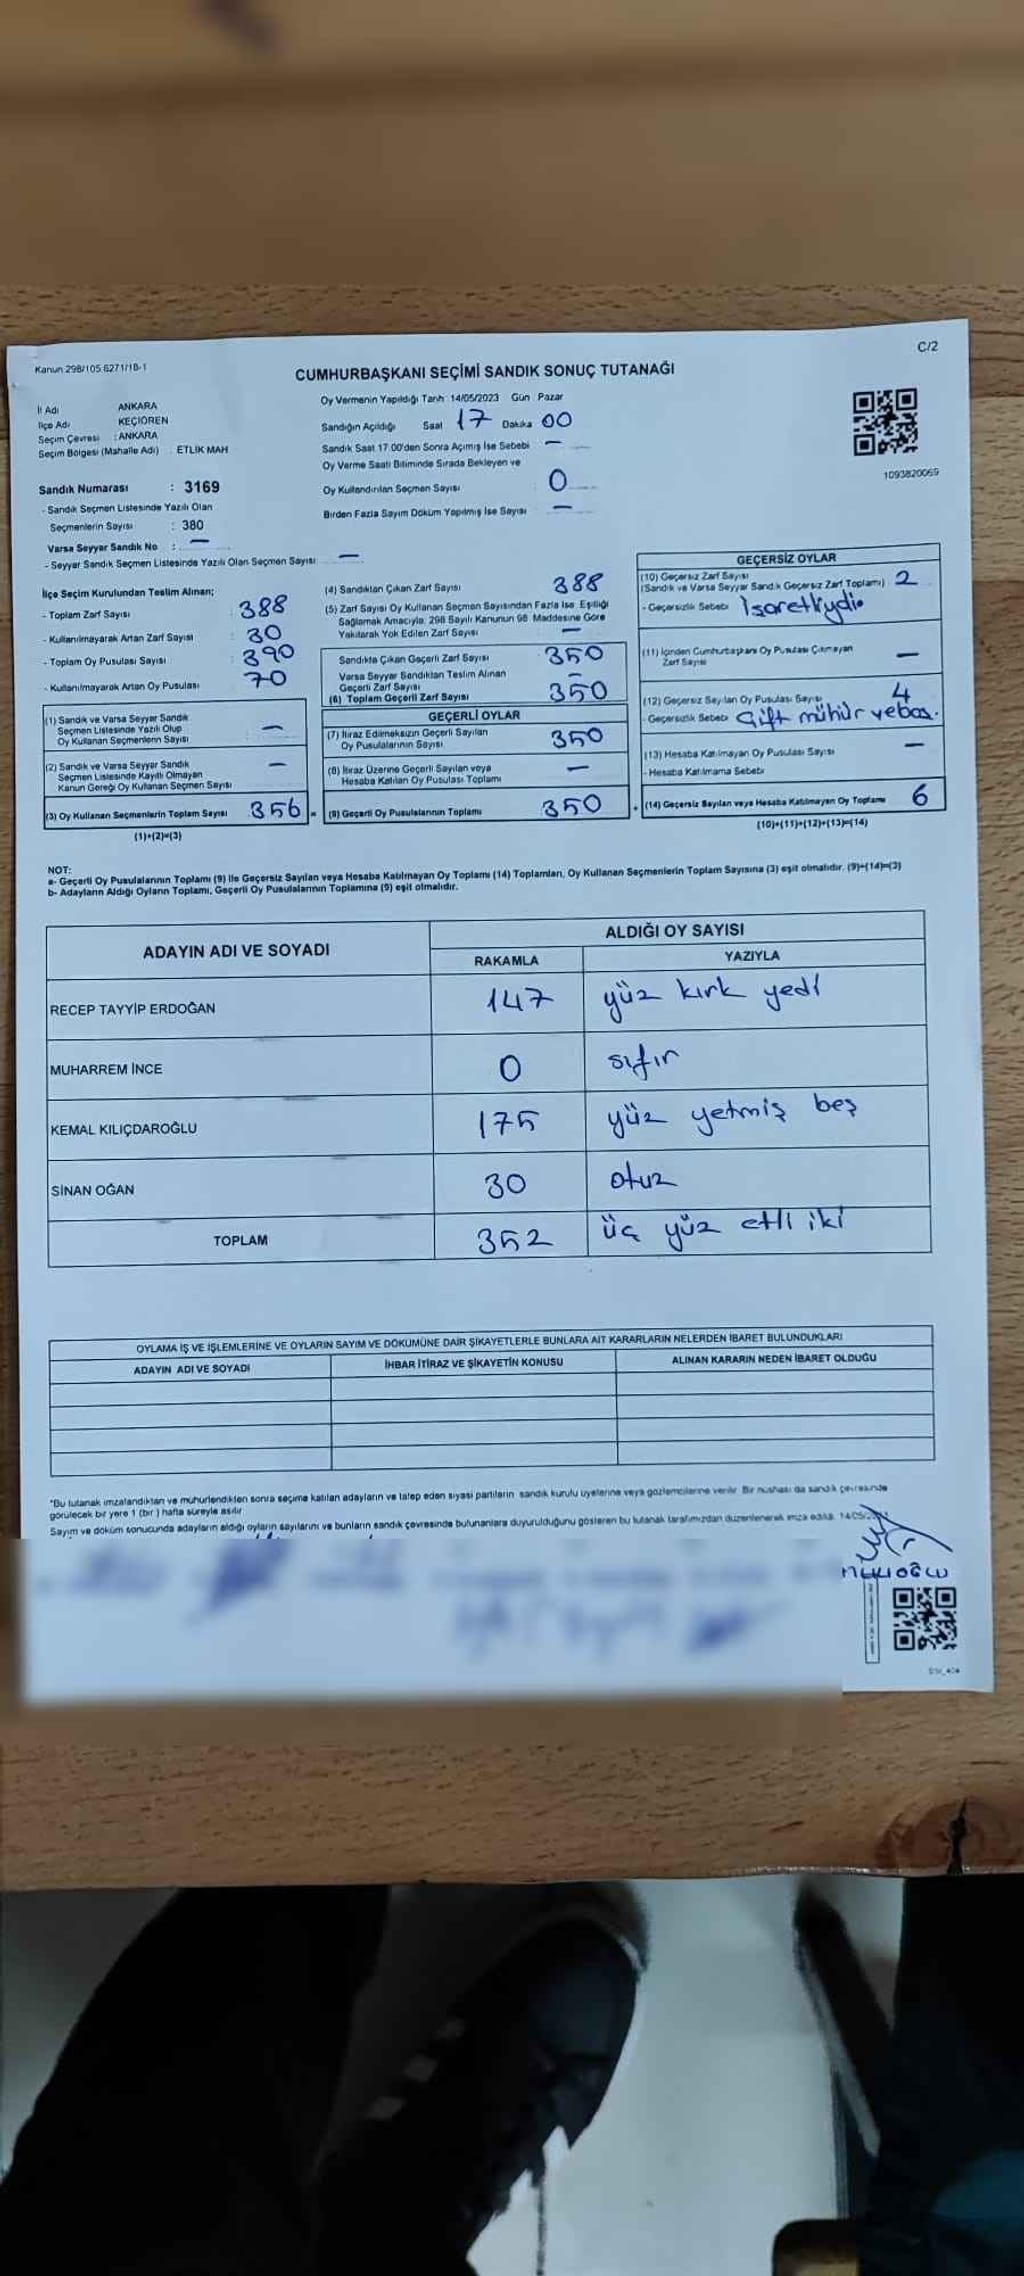 Kanun 298/105 6271/18-1
C/2
CUMHURBAŞKANI SEÇİMİ SANDIK SONUÇ TUTANAĞI
İl Adı ANKARA
İlçe Adı KEÇİÖREN
Seçim Çevresi : ANKARA
Seçim Bölgesi (Mahalle Adı) : ETLİK MAH
Sandık Numarası : 3169
- Sandık Seçmen Listesinde Yazılı Olan
Seçmenlerin Sayısı : 380
Varsa Seyyar Sandık No : —
- Seyyar Sandık Seçmen Listesinde Yazılı Olan Seçmen Sayısı: —
Oy Vermenin Yapıldığı Tarih 14/05/2023 Gün Pazar
Sandığın Açıldığı Saat 17 Dakika 00
Sandık Saat 17.00'den Sonra Açılmış İse Sebebi —
Oy Verme Saati Bitiminde Sırada Bekleyen ve
Oy Kullandırılan Seçmen Sayısı : 0
Birden Fazla Sayım Döküm Yapılmış İse Sayısı —
1093820069
İlçe Seçim Kurulundan Teslim Alınan;
- Toplam Zarf Sayısı : 388
- Kullanılmayarak Artan Zarf Sayısı : 30
- Toplam Oy Pusulası Sayısı : 390
- Kullanılmayarak Artan Oy Pusulası : 70
(1) Sandık ve Varsa Seyyar Sandık
Seçmen Listesinde Yazılı Olup
Oy Kullanan Seçmenlerin Sayısı —
(2) Sandık ve Varsa Seyyar Sandık
Seçmen Listesinde Kayıtlı Olmayan
Kanun Gereği Oy Kullanan Seçmen Sayısı —
(3) Oy Kullanan Seçmenlerin Toplam Sayısı 356 =
(1)+(2)=(3)
(4) Sandıktan Çıkan Zarf Sayısı 388
(5) Zarf Sayısı Oy Kullanan Seçmen Sayısından Fazla İse Eşitliği
Sağlamak Amacıyla, 298 Sayılı Kanunun 98. Maddesine Göre
Yakılarak Yok Edilen Zarf Sayısı —
Sandıkta Çıkan Geçerli Zarf Sayısı 350
Varsa Seyyar Sandıktan Teslim Alınan
Geçerli Zarf Sayısı —
(6) Toplam Geçerli Zarf Sayısı 350
GEÇERLİ OYLAR
(7) İtiraz Edilmeksizin Geçerli Sayılan
Oy Pusulalarının Sayısı 350
(8) İtiraz Üzerine Geçerli Sayılan veya
Hesaba Katılan Oy Pusulası Toplamı —
(9) Geçerli Oy Pusulalarının Toplamı 350 +
GEÇERSİZ OYLAR
(10) Geçersiz Zarf Sayısı
(Sandık ve Varsa Seyyar Sandık Geçersiz Zarf Toplamı) 2
- Geçersizlik Sebebi İşaretliydi.
(11) İçinden Cumhurbaşkanı Oy Pusulası Çıkmayan
Zarf Sayısı —
(12) Geçersiz Sayılan Oy Pusulası Sayısı 4
- Geçersizlik Sebebi Çift mühür ve boş.
(13) Hesaba Katılmayan Oy Pusulası Sayısı —
- Hesaba Katılmama Sebebi
(14) Geçersiz Sayılan veya Hesaba Katılmayan Oy Toplamı 6
(10)+(11)+(12)+(13)=(14)
NOT:
a- Geçerli Oy Pusulalarının Toplamı (9) ile Geçersiz Sayılan veya Hesaba Katılmayan Oy Toplamı (14) Toplamları, Oy Kullanan Seçmenlerin Toplam Sayısına (3) eşit olmalıdır. (9)+(14)=(3)
b- Adayların Aldığı Oyların Toplamı, Geçerli Oy Pusulalarının Toplamına (9) eşit olmalıdır.
ADAYIN ADI VE SOYADI ALDIĞI OY SAYISI
RAKAMLA YAZIYLA
RECEP TAYYİP ERDOĞAN 147 yüz kırk yedi
MUHARREM İNCE 0 sıfır
KEMAL KILIÇDAROĞLU 175 yüz yetmiş beş
SİNAN OĞAN 30 otuz
TOPLAM 352 üç yüz elli iki
OYLAMA İŞ VE İŞLEMLERİNE VE OYLARIN SAYIM VE DÖKÜMÜNE DAİR ŞİKAYETLERLE BUNLARA AİT KARARLARIN NELERDEN İBARET BULUNDUKLARI
ADAYIN ADI VE SOYADI İHBAR İTİRAZ VE ŞİKAYETİN KONUSU ALINAN KARARIN NEDEN İBARET OLDUĞU
*Bu tutanak imzalandıktan ve mühürlendikten sonra seçime katılan adayların ve talep eden siyasi partilerin sandık kurulu üyelerine veya gözlemcilerine verilir. Bir nüshası da sandık çevresinde
görülecek bir yere 1 (bir) hafta süreyle asılır
Sayım ve döküm sonucunda adayların aldığı oyların sayılarını ve bunların sandık çevresinde bulunanlara duyurulduğunu gösteren bu tutanak tarafımızdan düzenlenerek imza edildi.